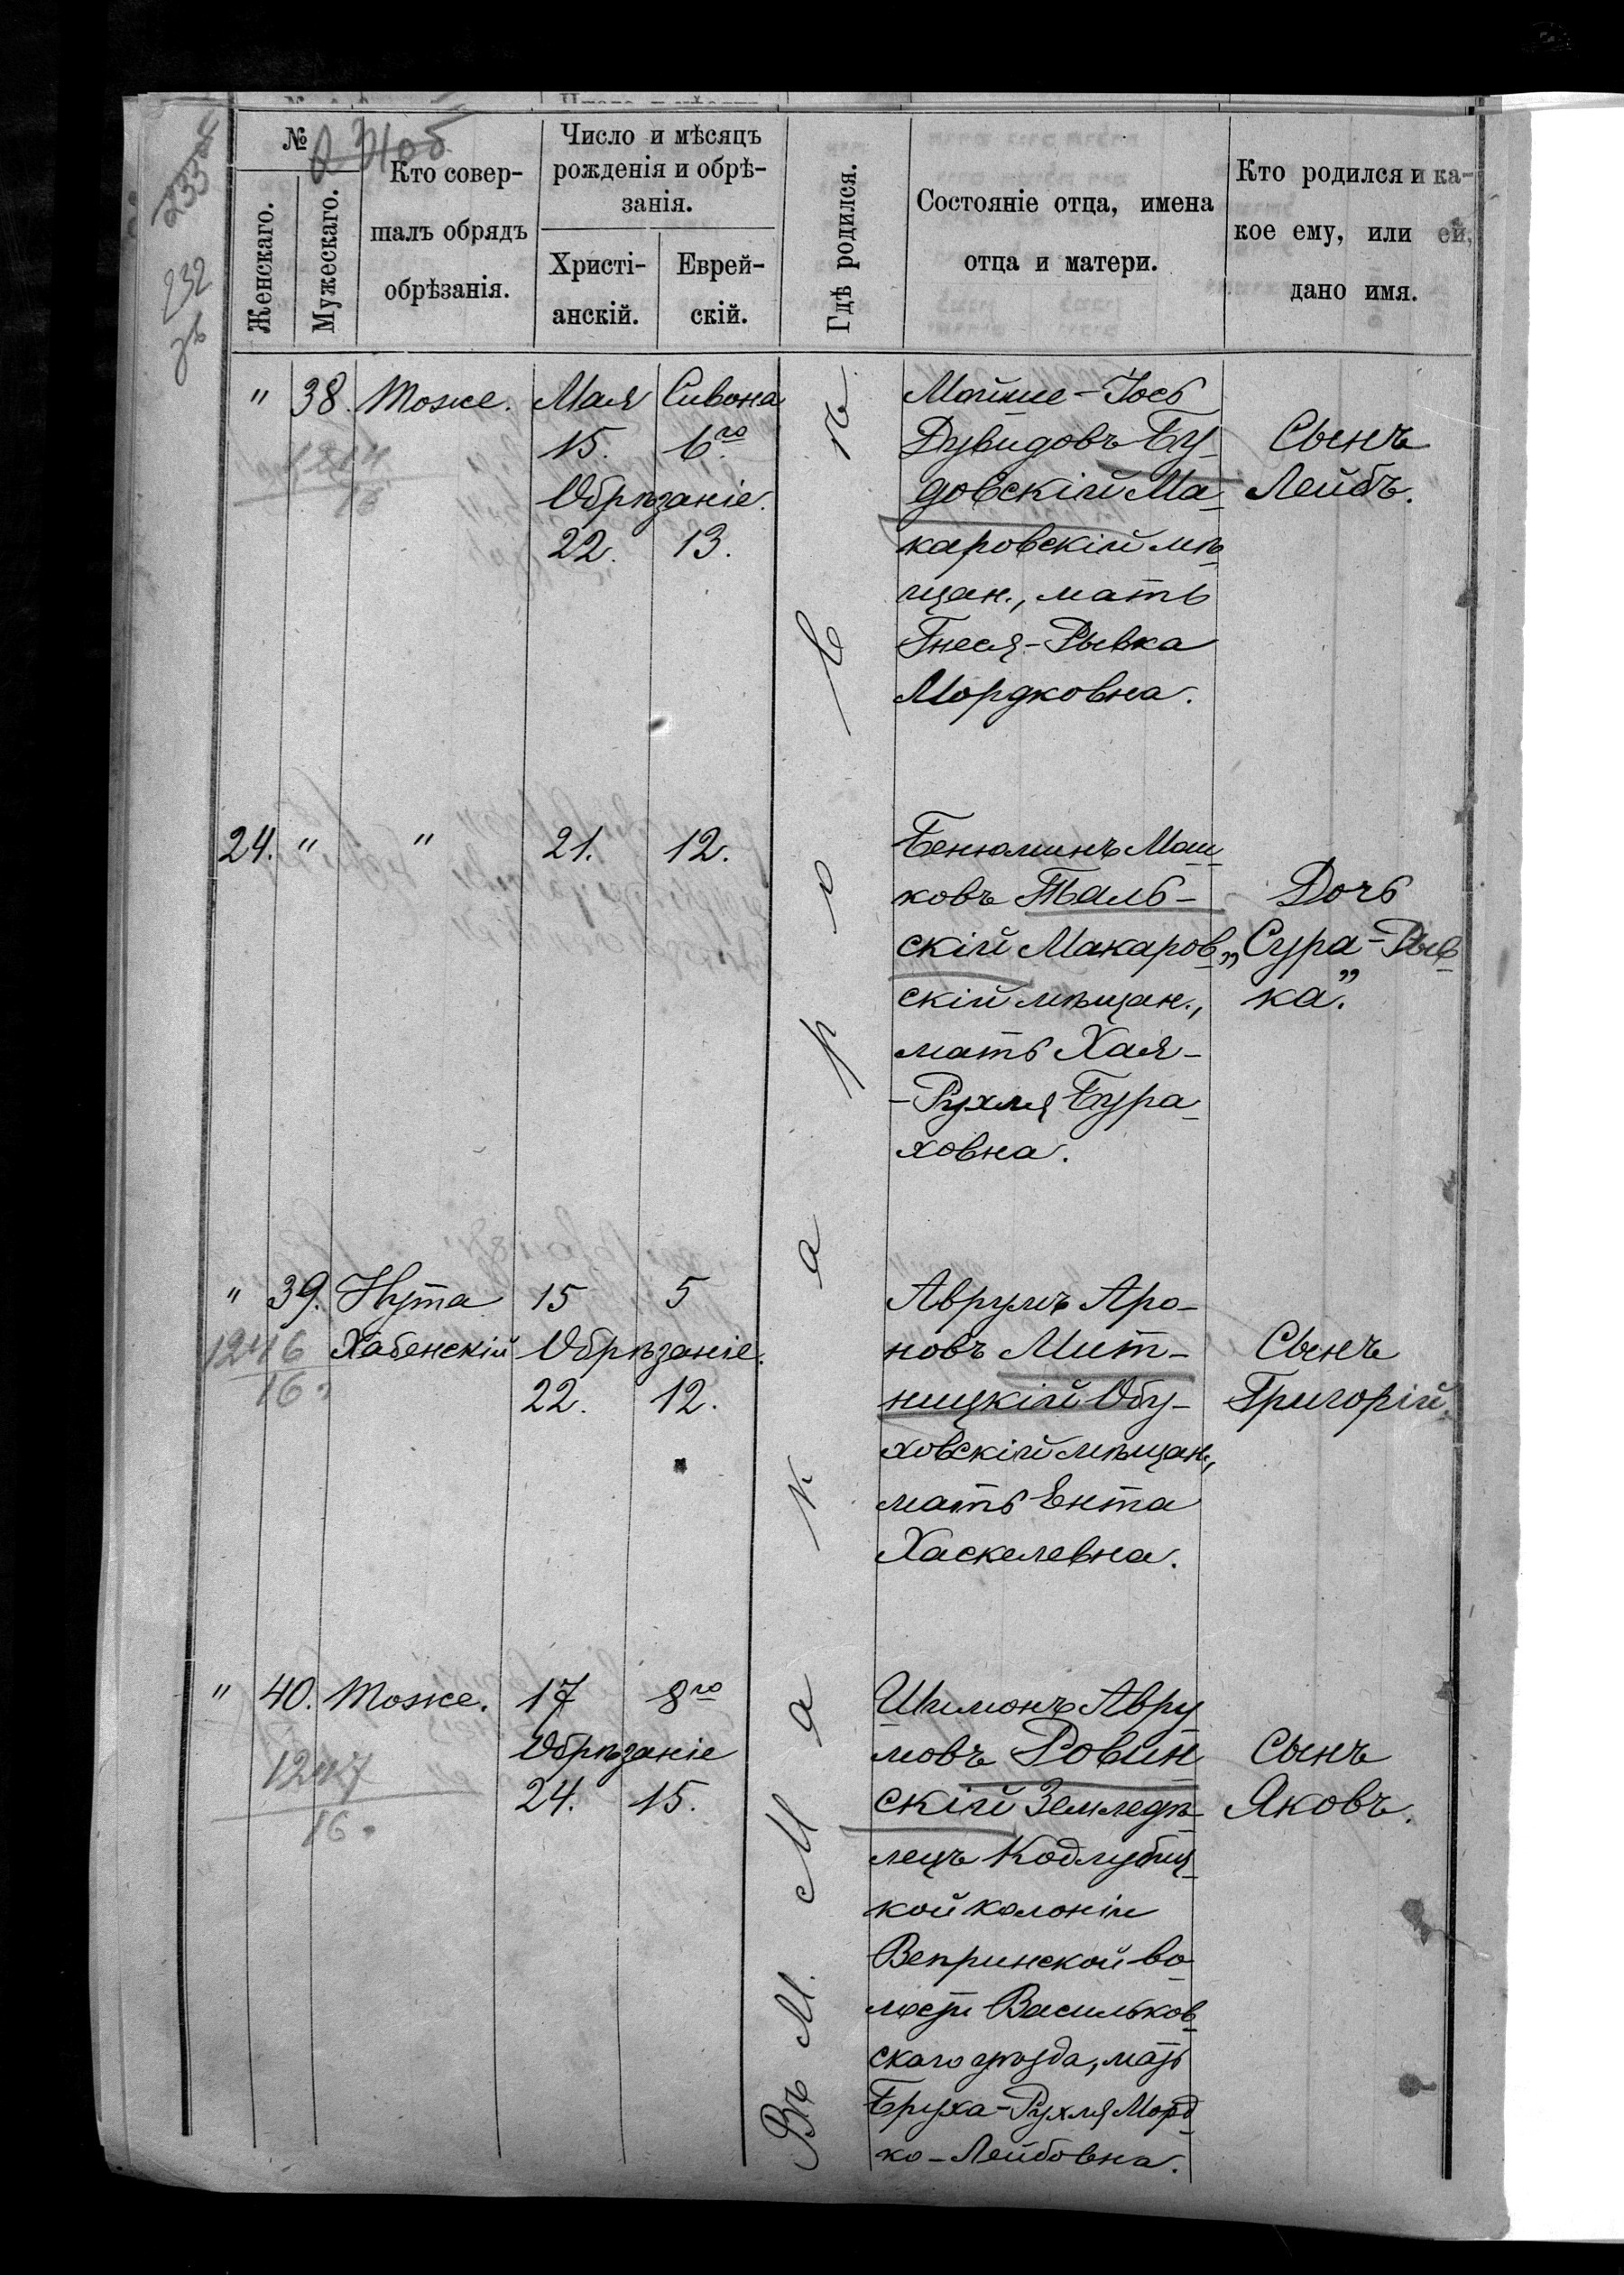 233
232
зв
№
Женскаго.
Мужескаго.
Кто совер-
шалъ обрядъ
обрѣзанія.
Число и мѣсяцъ
рожденія и обрѣ-
занія.
Христі-
анскій.
Еврей-
скій.
Гдѣ родился.
Состояніе отца, имена
отца и матери.
Кто родился и ка-
кое ему, или ей,
дано имя.
Въ М. Макаровѣ
" 38. Тоже. Мая Сивона
15. 6го
Обрѣзаніе.
22. 13.
Мойше-Іось
Дувидовъ Бу-
довскій Ма-
каровскій мѣ-
щан., мать
Гнеся-Рывка
Мордковна.
Сынъ
Лейбъ.
24. " " 21. 12.
Бенюминъ Мош-
ковъ Таль-
скій Макаров-
скій мѣщан.,
мать Хая-
-Рухля Бура-
ховна.
Дочь
„Сура-Рыв-
ка".
" 39. Нута 15 5
1246 Хабенскій Обрѣзаніе.
16. 22. 12.
Аврумъ Аро-
новъ Мит-
ницкій Обу-
ховскій мѣщан.,
мать Ента
Хаскелевна.
Сынъ
Григорій.
" 40. Тоже. 17 8го
Обрѣзаніе
1247 24. 15.
16.
Шимонъ Авру
мовъ Ровин
скій Земледѣ-
лецъ Кодлубиц-
кой колоніи
Вепринской во-
лости Васильков-
скаго уѣзда, мать
Бруха-Рухля Морд-
ко-Лейбовна.
Сынъ
Яковъ.